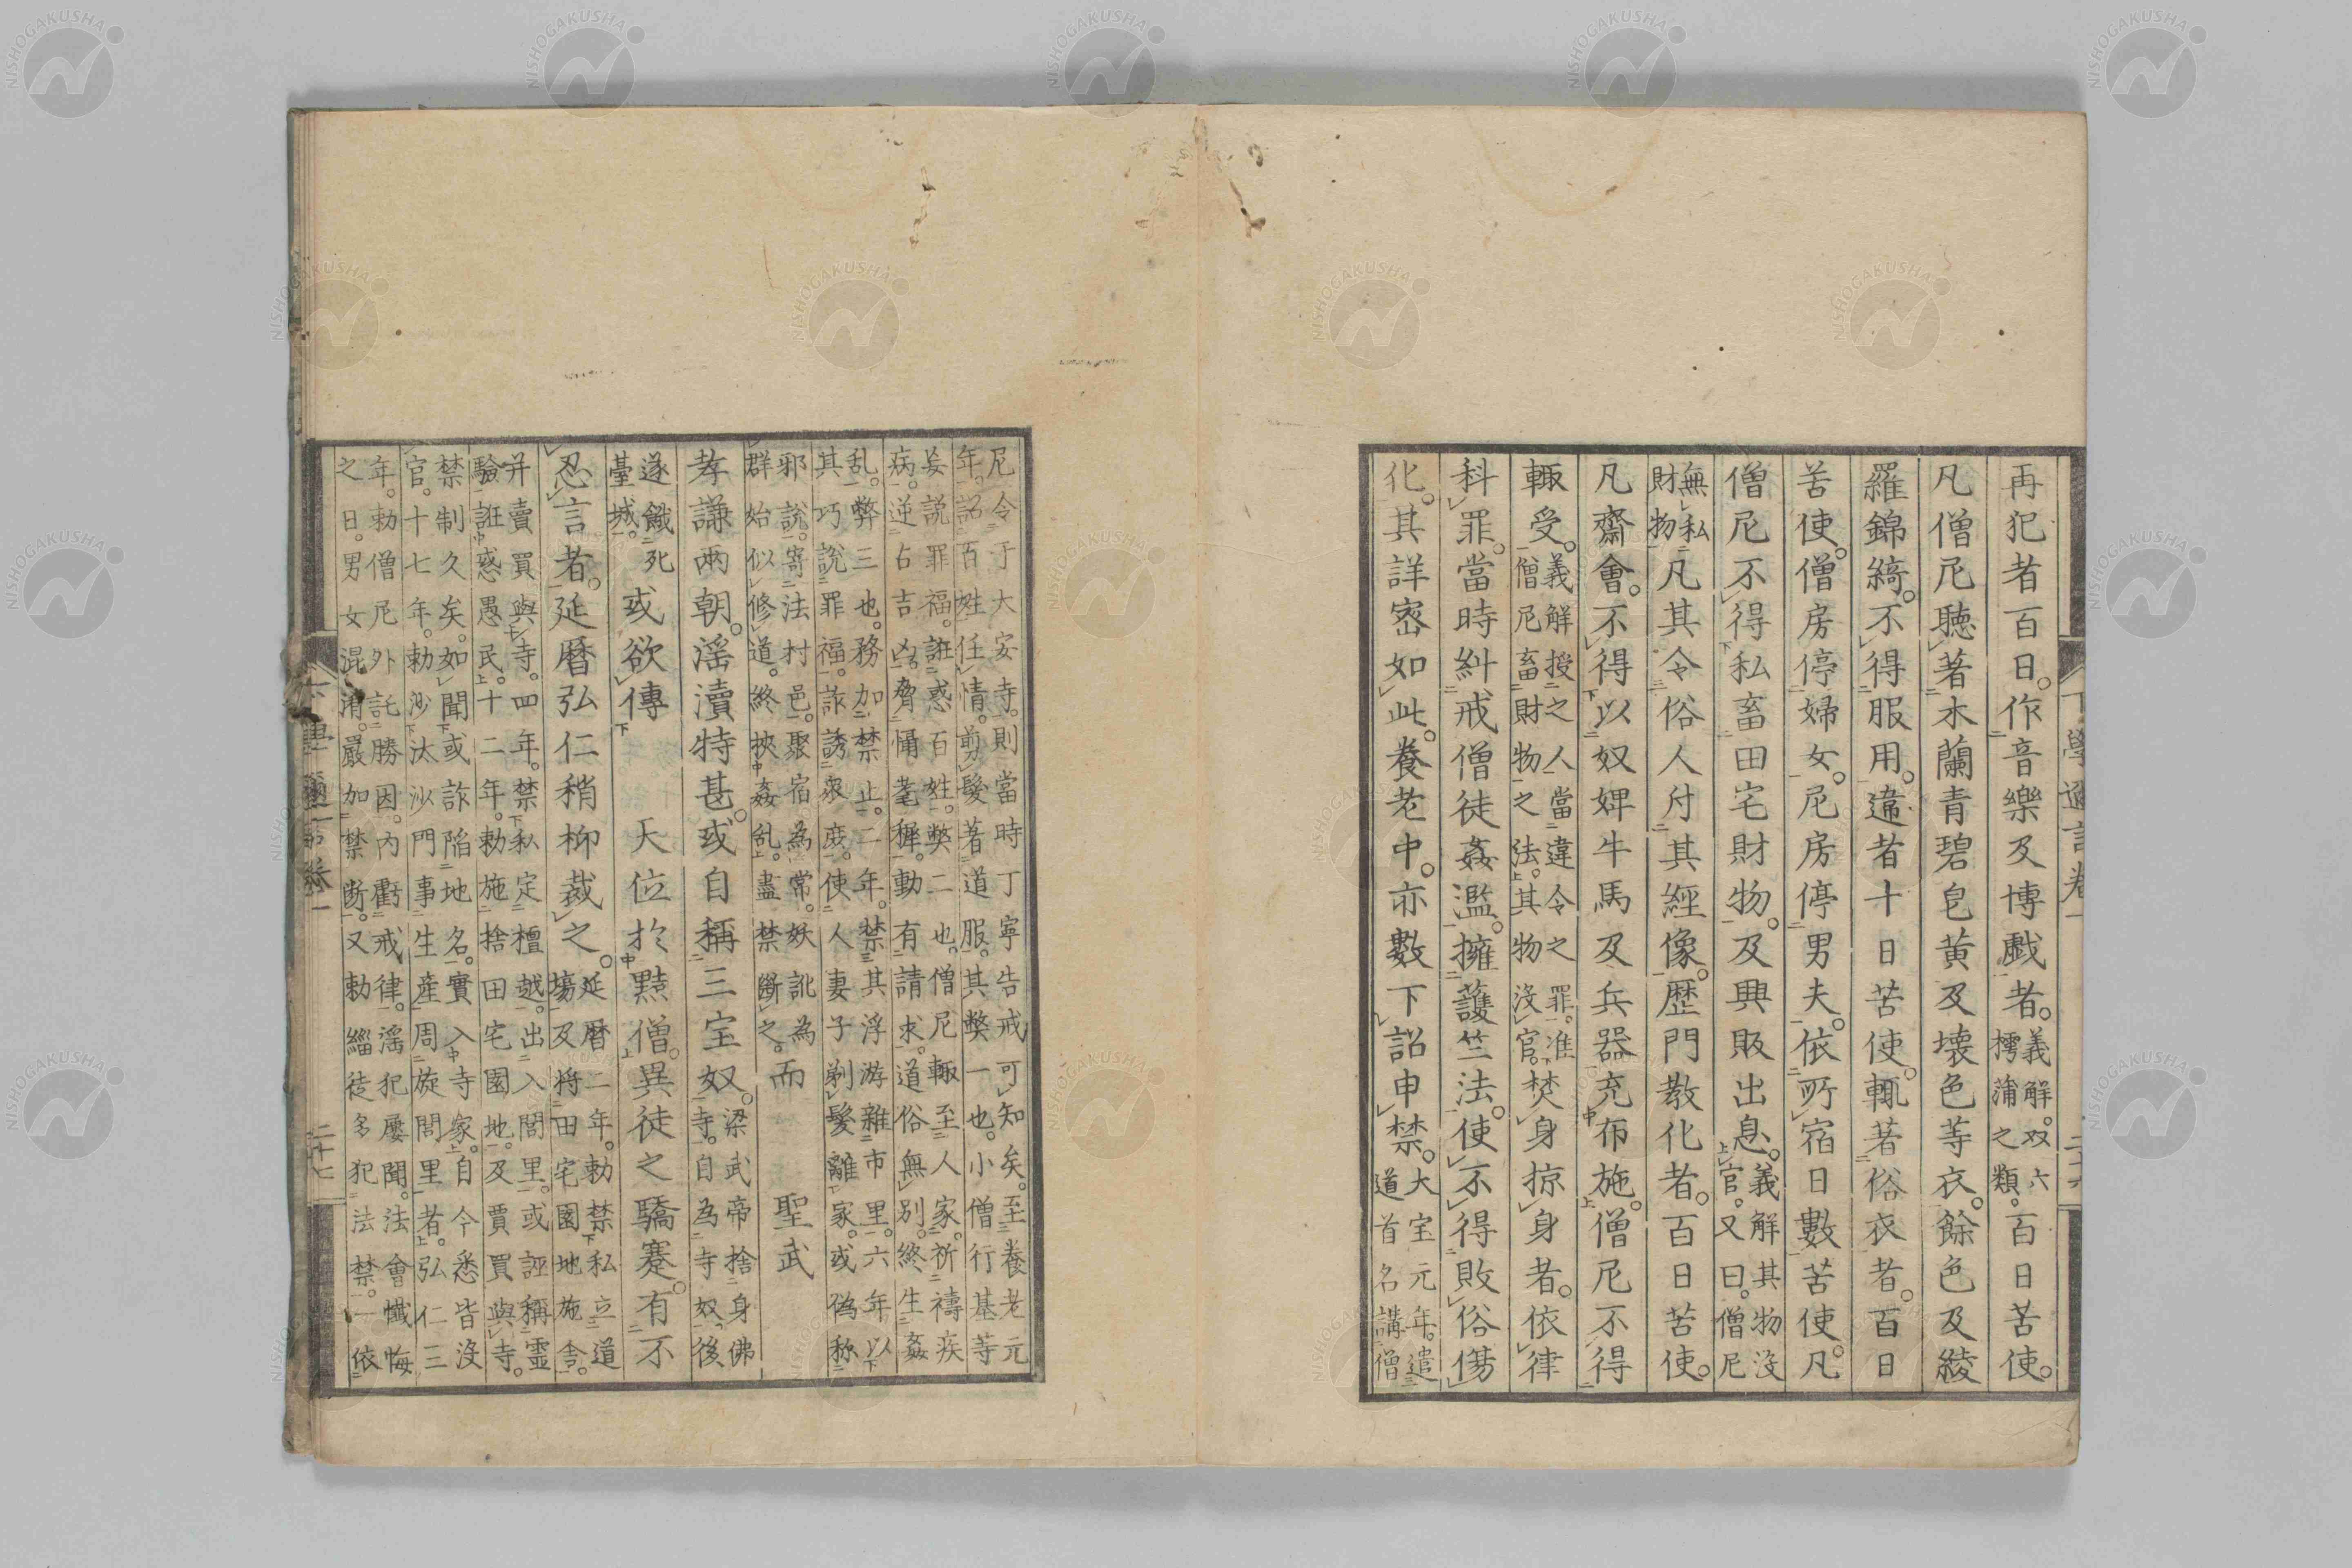 再犯者百日。作音樂及博戯者。義解。双六樗蒲之類。百日苦使。
凡僧尼聽著木蘭青碧皂黄及壊色等衣。餘色及綾
羅錦綺。不得服用。違者十日苦使。輙著俗衣者。百日
苦使。僧房停婦女。尼房停男夫。依所宿日數苦使。凡
僧尼不得私畜田宅財物。及興販出息。義解其物没官。又曰。僧尼
無私財物凡其令俗人付其經像。歴門教化者。百日苦使。
凡齋會。不得以奴婢牛馬及兵器充布施。僧尼不得
輙受。義解授之人當違令之罪。准僧尼畜財物之法。其物没官。焚身掠身者。依律
科罪。當時糾戒僧徒姦濫。擁護竺法。使不得敗俗傷
化。其詳密如此。養老中。亦數下詔申禁。大宝元年。遣道首名講僧
尼令于大安寺。則當時丁寧告戒可知矣。至養老元
年。詔百姓任情。剪髮著道服。其弊一也。小僧行基等
妄説罪福。誑惑百姓。弊二也。僧尼輙至人家。祈禱疾
病。逆占吉凶。脅懼耄穉。動有請求。道俗無別。終生姦
乱。弊三也。務加禁止。二年。禁其浮游雜市里。六年以
其巧説罪福。詐誘衆庶。使人妻子剃髮離家。或偽称
邪説。寄法村邑。聚宿為常。妖訛為
群始似修道。終挾姦乱。盡禁斷之。而聖武
孝謙兩朝。滛瀆特甚。或自稱三宝奴。梁武帝捨身佛寺。自為寺奴。後
遂餓死臺城。或欲傳天位於黠僧。異徒之驕蹇。有不
忍言者。延暦弘仁稍抑裁之。延暦二年。勅禁私立道塲及将田宅園地施舎。
并賣買與寺。四年。禁私定檀越。出入閭里。或誣稱靈
驗誑惑愚民。十二年。勅施捨田宅園地。及賈買與寺。
禁制久矣。如聞或詐陷地名。實入寺家。自今悉皆没
官。十七年。勅沙汰沙門事生産周旋閭里者。弘仁三
年。勅僧尼外託勝因。内虧戒律。滛犯屡聞。法會懺悔
之日。男女混淆。嚴加禁断。又勅緇徒多犯法禁。一依
下學邇言卷一
二十六
二十七
NISHOGAKUSHA